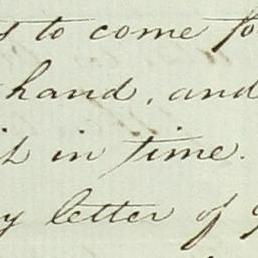 to come
hand, and
in time.
letter of